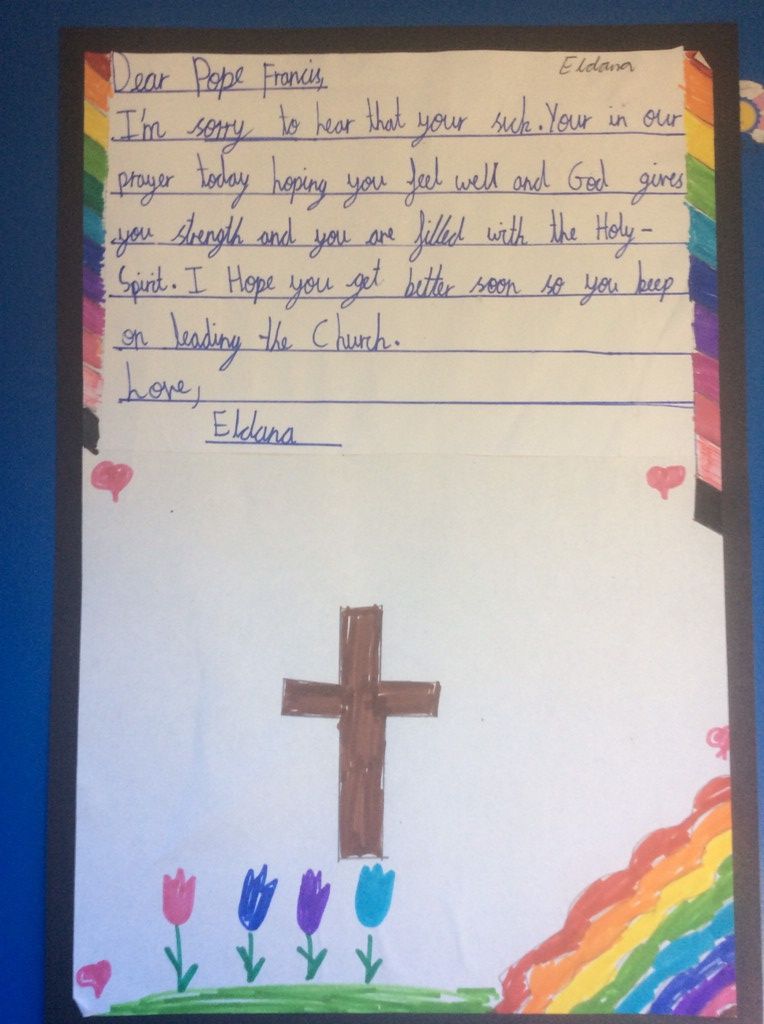 Eldana
Dear Pope Francis,
I'm sorry to hear that your sick. Your in our
prayer today hoping you feel well and God gives
you strength and you are filled with the Holy-
Spirit. I Hope you get better soon so you keep
on leading the Church.
Love,
Eldana